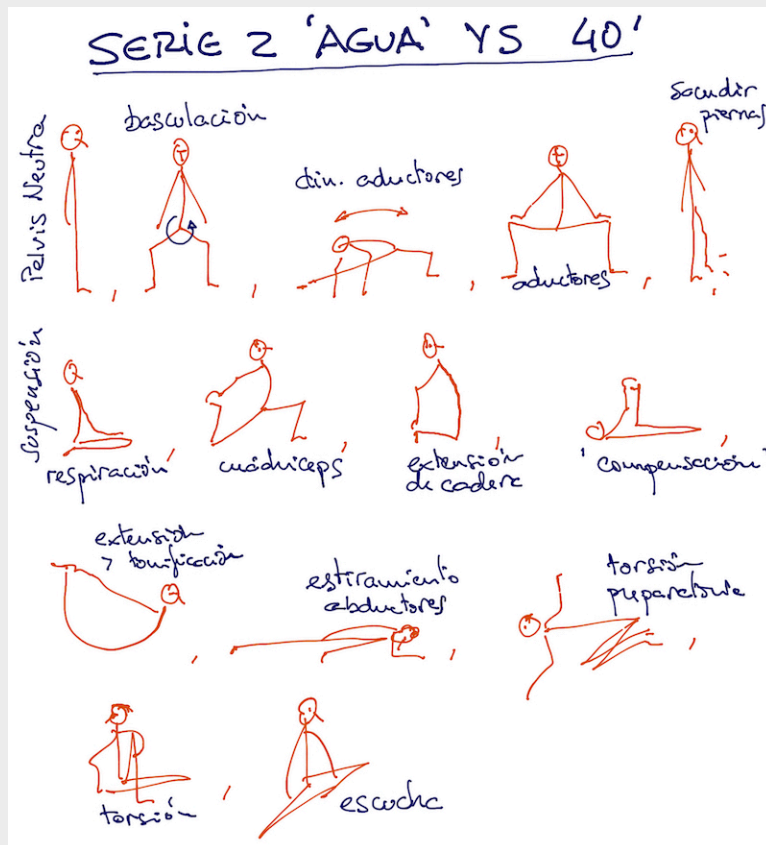 SERIE 2 'AGUA' YS 40'
Pelvis Neutra
basculación
din. aductores
aductores
sacudir
piernas
Suspensión
respiración
cuádriceps
extensión
de cadera
'compensación'
extensión
y tonificación
estiramiento
abductores
torsión
preparatoria
torsión
escucha